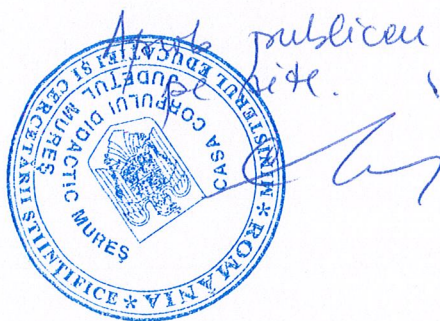 publicau
pe site.
ROMÂNIA * MINISTERUL EDUCAȚIEI ȘI CERCETĂRII ȘTIINȚIFICE *
JUDEȚUL MUREȘ
CASA CORPULUI DIDACTIC MUREȘ